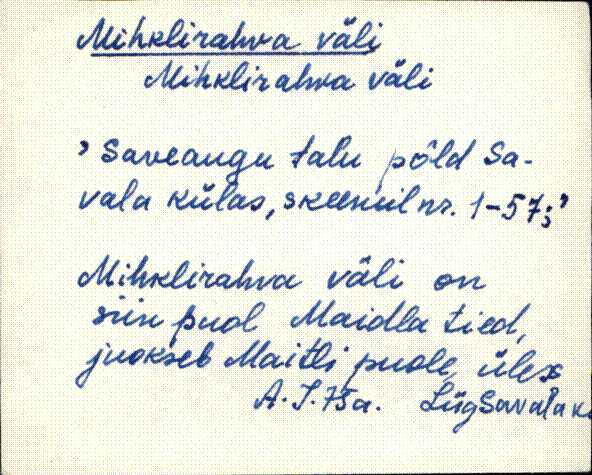 Mihklirahva väli
Mihklirahva väli
, Saveaugu talu põld Sa-
vala külas, skeemil nr. 1-57;'
Mihklirahva väli on
siin puol Maidla tied,
juokseb Maitli puole, üles
A. I. 75a. Lüg Savala k.